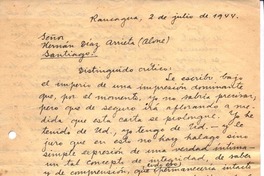 Rancagua, 2 de julio de 1944.
Señor
Hernán Díaz Arrieta (Alone)
Santiago.
Distinguido crítico:
Le escribo bajo
el imperio de una impresión dominante
que, por el momento, yo no sabría precisar,
pero que de seguro irá aflorando a me-
dida que esta carta se prolongue. Yo he
tenido de Ud., yo tengo de Ud. — y le
juro que en esto no hay halago sino
simple expresión de una verdad íntima —
un tal concepto de integridad, de saber
y de comprensión, que permanecería intacto